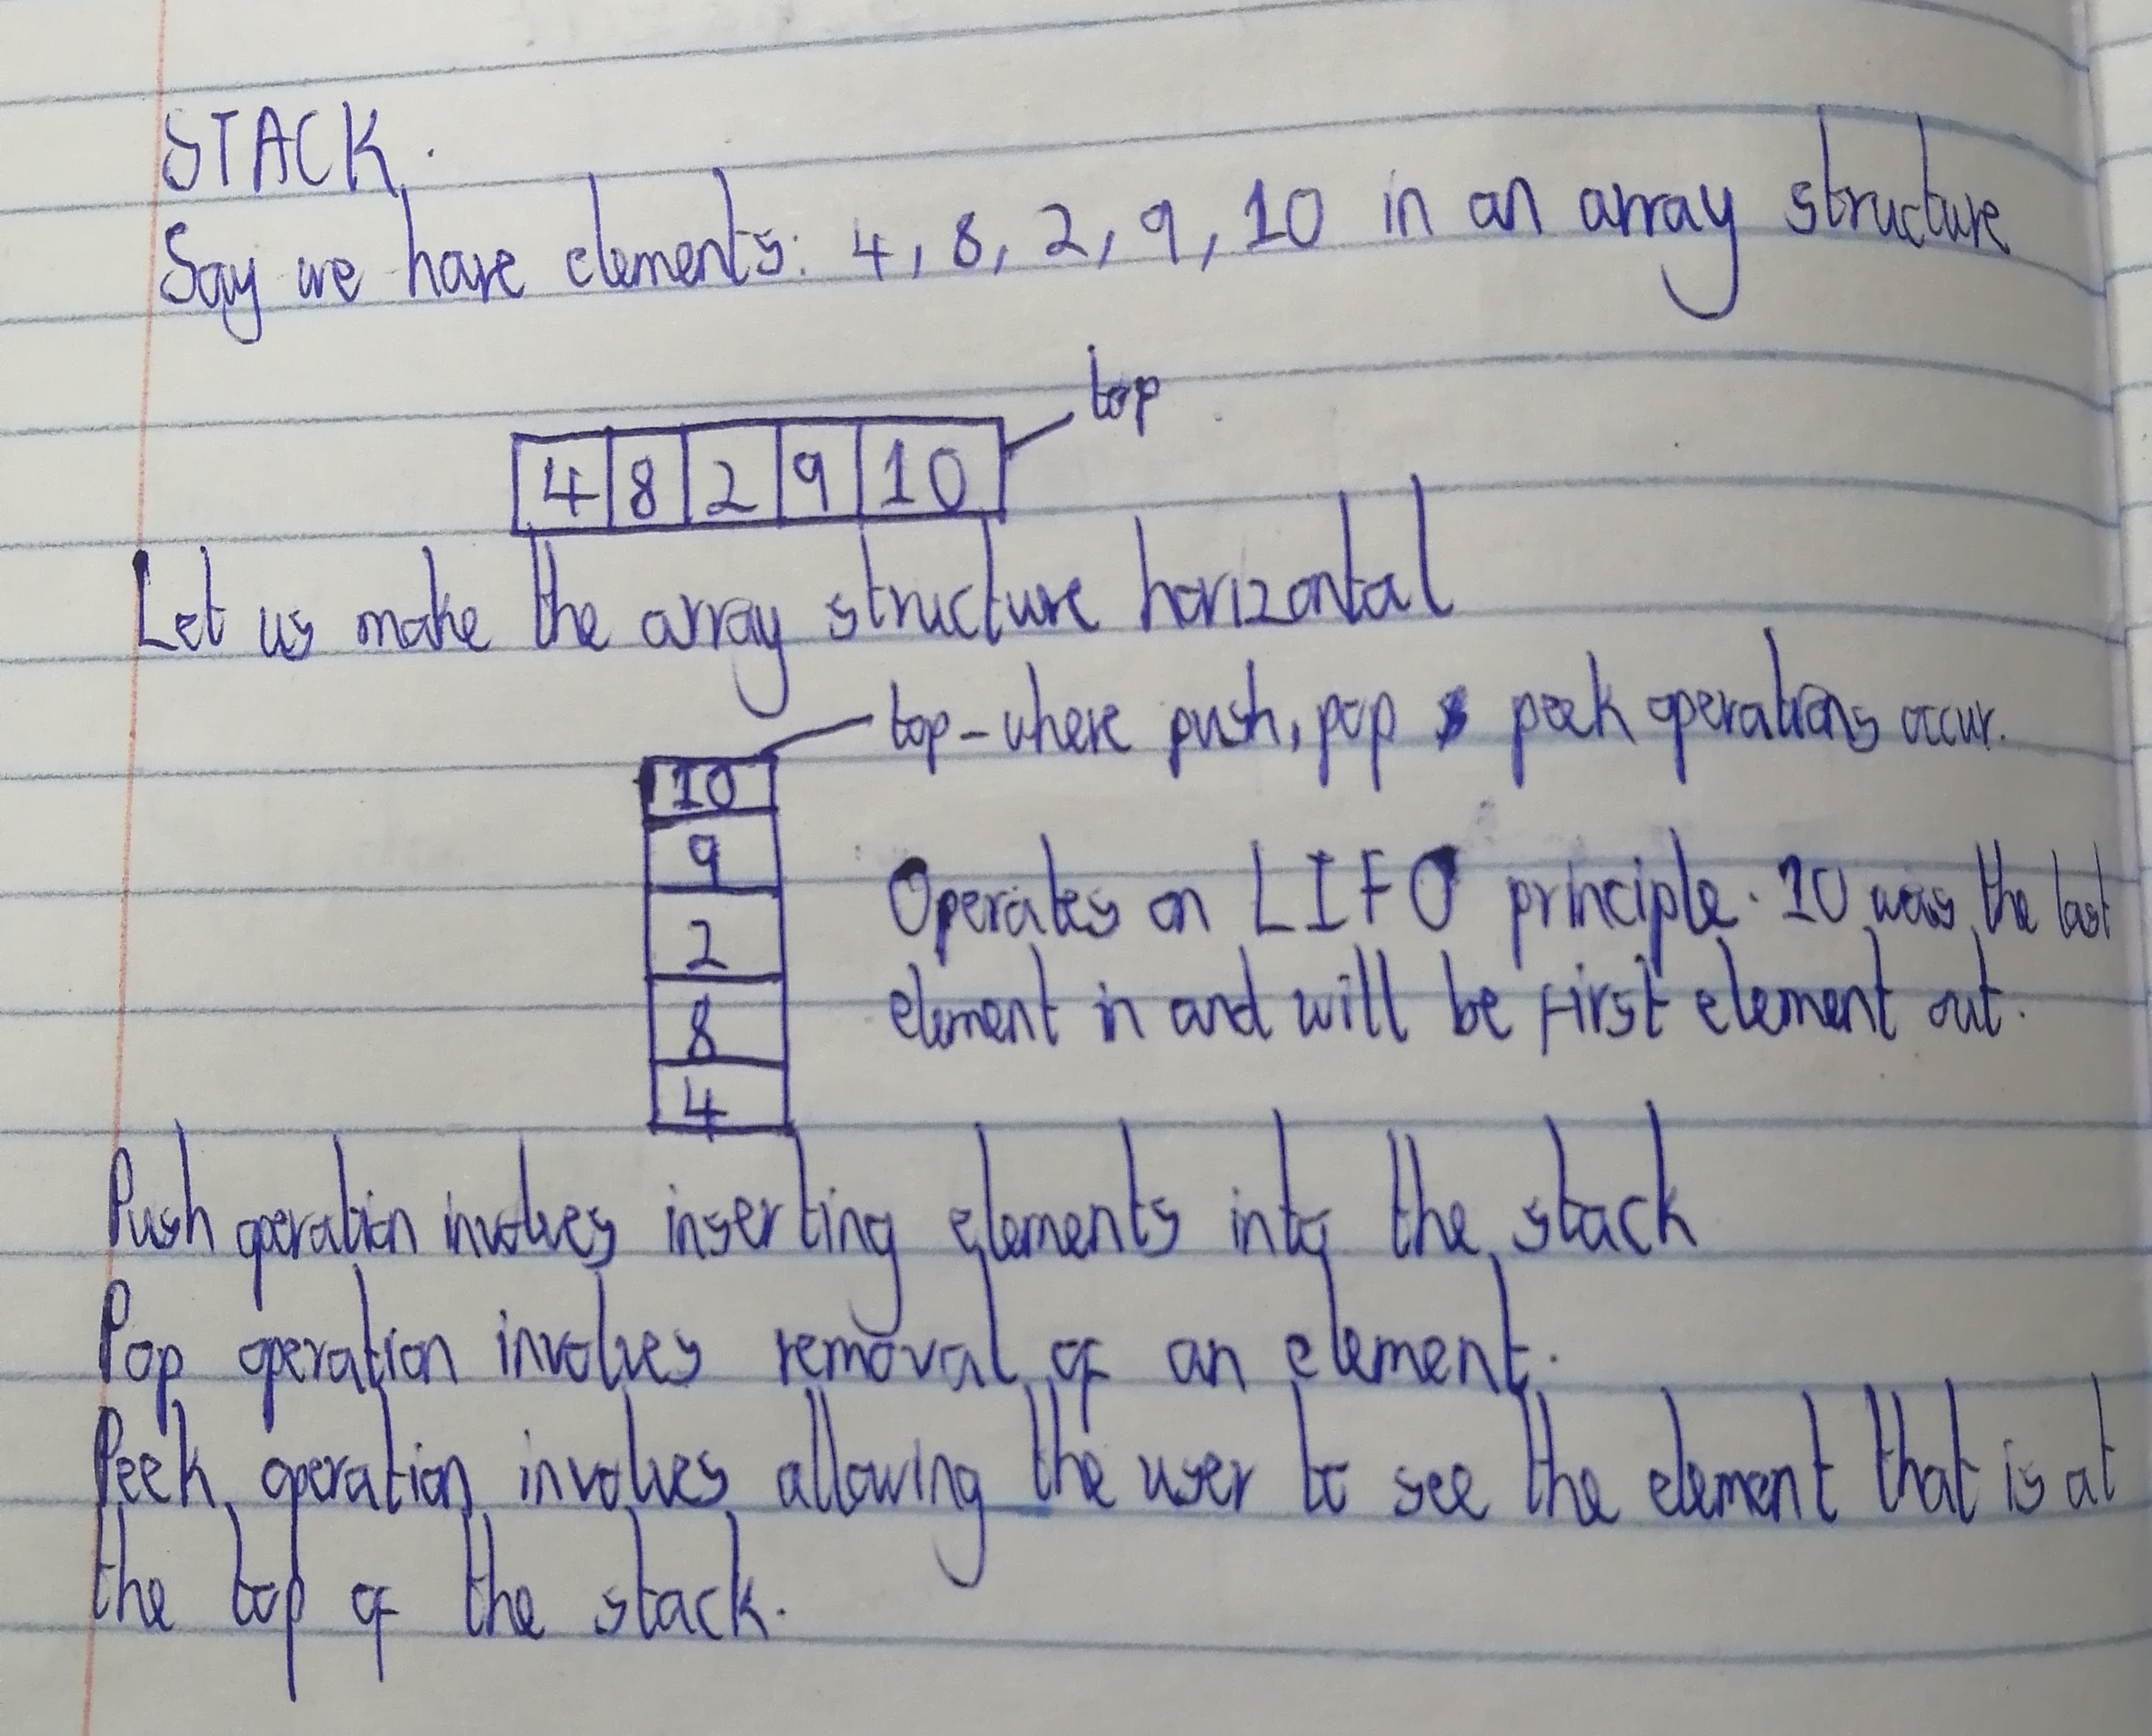 STACK.
Say we have elements: 4, 8, 2, 9, 10 in an array structure
top
4 8 2 9 10
Let us make the array structure horizontal
top - where push, pop & peek operations occur.
10
9
Operates on LIFO principle. 10 was the last
2
element in and will be first element out.
8
4
Push operation involves inserting elements into the stack
Pop operation involves removal of an element.
Peek operation involves allowing the user to see the element that is at
the top of the stack.